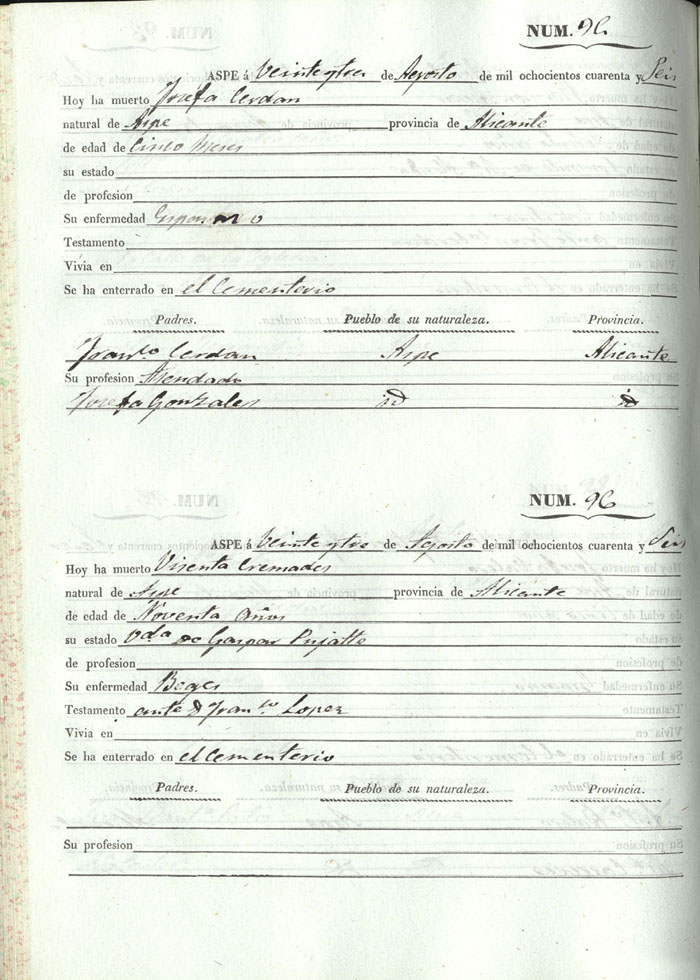 NUM. 96
ASPE á Veinte y tres de Agosto de mil ochocientos cuarenta y Seis
Hoy ha muerto Josefa Cerdan
natural de Aspe provincia de Alicante
de edad de Cinco Meses
su estado
de profesión
Su enfermedad
Testamento
Vivia en
Se ha enterrado en el Cementerio
Padres. Pueblo de su naturaleza. Provincia.
Franco Cerdan Aspe Alicante
Su profesion
Josefa Gonzales id id
NUM. 96
ASPE á Veinte y tres de Agosto de mil ochocientos cuarenta y Seis
Hoy ha muerto Visenta Cremades
natural de Aspe provincia de Alicante
de edad de Noventa Años
su estado Vda de Gaspar Pujalte
de profesion
Su enfermedad Beges
Testamento ante Dn Franco Lopez
Vivia en
Se ha enterrado en el Cementerio
Padres. Pueblo de su naturaleza. Provincia.
Su profesion